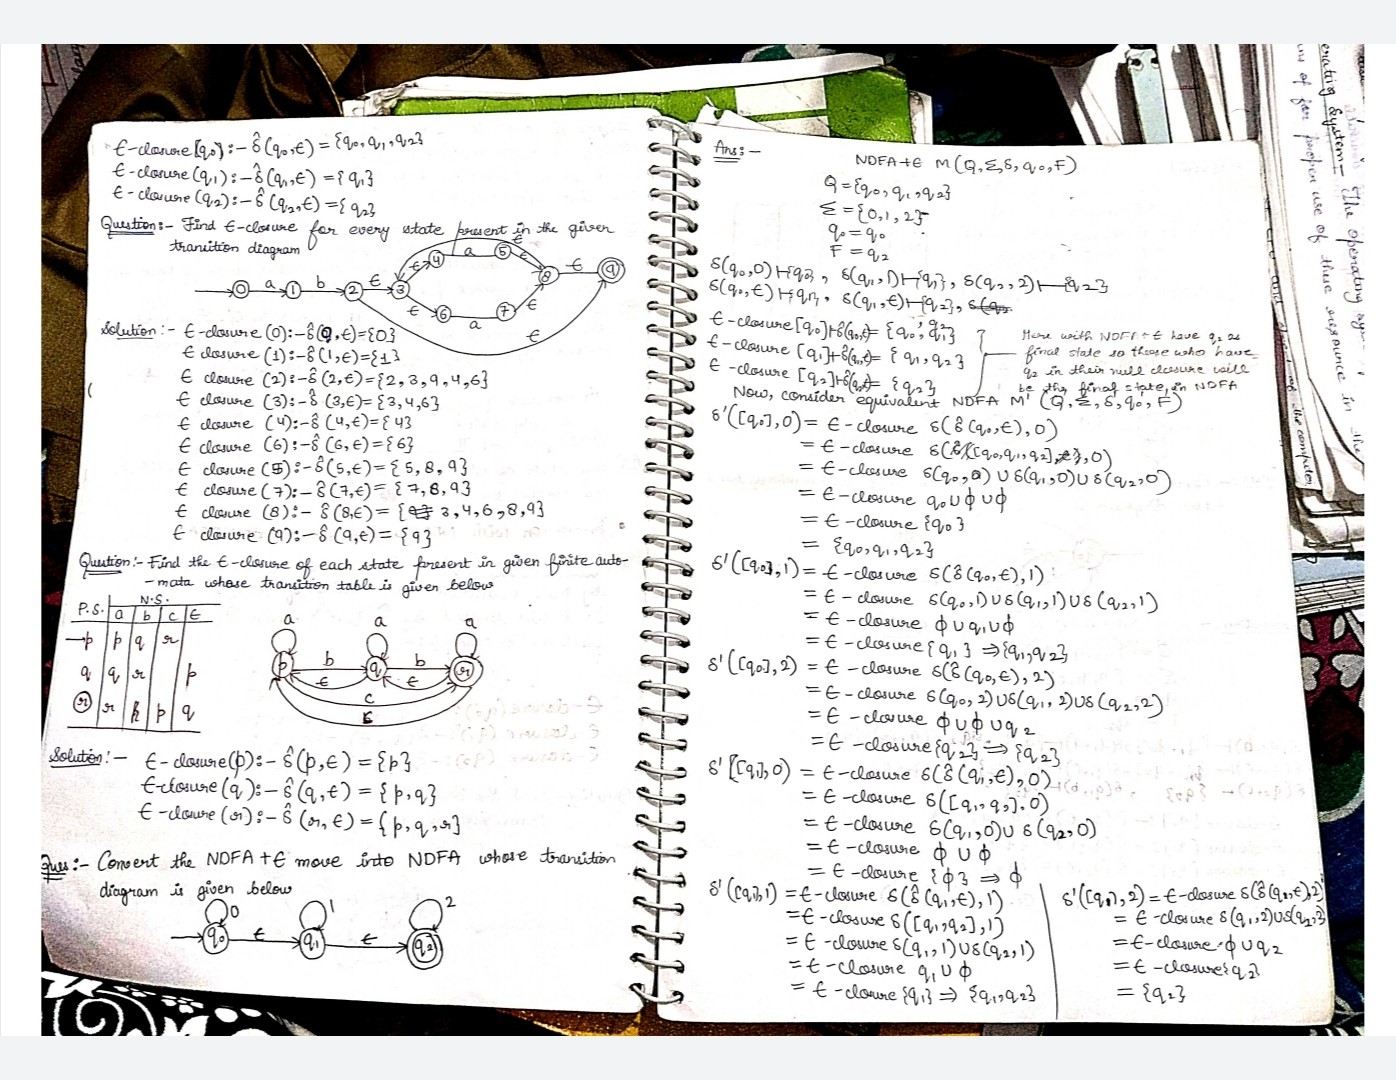 ϵ-closure[q₀]:- δ̂(q₀,ϵ) = {q₀,q₁,q₂}
ϵ-closure(q₁):- δ̂(q₁,ϵ) = {q₁}
ϵ-closure(q₂):- δ̂(q₂,ϵ) = {q₂}
Question:- Find ϵ-closure for every state present in the given
transition diagram
0 a 1 b 2 ϵ 3 ϵ 4 a 5 ϵ 8 ϵ 9
ϵ
ϵ 6 a 7 ϵ
ϵ
Solution:- ϵ-closure (0):- δ̂(0,ϵ)={0}
ϵ closure (1):- δ̂(1,ϵ)={1}
ϵ closure (2):- δ̂(2,ϵ)={2,3,9,4,6}
ϵ closure (3):- δ̂(3,ϵ)={3,4,6}
ϵ closure (4):- δ̂(4,ϵ)={4}
ϵ closure (6):- δ̂(6,ϵ)={6}
ϵ closure (5):- δ̂(5,ϵ)={5,8,9}
ϵ closure (7):- δ̂(7,ϵ)={7,8,9}
ϵ closure (8):- δ̂(8,ϵ)={3,4,6,8,9}
ϵ closure (9):- δ̂(9,ϵ)={9}
Question:- Find the ϵ-closure of each state present in given finite auto-
-mata whose transition table is given below
P.S. N.S.
a b c ϵ
→p p q r
q q r p
r r p q
a a a
p b q b r
ϵ ϵ
c
ϵ
Solution:- ϵ-closure(p):- δ̂(p,ϵ) = {p}
ϵ-closure(q):- δ̂(q,ϵ) = {p,q}
ϵ-closure(r):- δ̂(r,ϵ) = {p,q,r}
Ques:- Convert the NDFA+ϵ move into NDFA whose transition
diagram is given below
0 1 2
q₀ ϵ q₁ ϵ q₂
Ans:-
NDFA+ϵ M(Q,Σ,δ,q₀,F)
Q={q₀,q₁,q₂}
Σ={0,1,2}
q₀=q₀
F=q₂
δ(q₀,0)⊢{q₀}, δ(q₁,1)⊢{q₁}, δ(q₂,2)⊢{q₂}
δ(q₀,ϵ)⊢q₁, δ(q₁,ϵ)⊢{q₂},
ϵ-closure[q₀]⊢δ̂(q₀,ϵ)= {q₀,q₁,q₂}
ϵ-closure [q₁]⊢δ̂(q₁,ϵ)= {q₁,q₂}
ϵ-closure [q₂]⊢δ̂(q₂,ϵ)= {q₂}
Here with NDFA+ϵ have q₂ as
final state so those who have
q₂ in their null closure will
be the final state in NDFA
Now, consider equivalent NDFA M' (Q,Σ,δ,q₀',F)
δ'([q₀],0)= ϵ-closure δ(δ̂(q₀,ϵ),0)
= ϵ-closure δ([q₀,q₁,q₂],0)
= ϵ-closure δ(q₀,0)∪δ(q₁,0)∪δ(q₂,0)
= ϵ-closure q₀∪ϕ∪ϕ
= ϵ-closure {q₀}
= {q₀,q₁,q₂}
δ'([q₀],1)= ϵ-closure δ(δ̂(q₀,ϵ),1)
= ϵ-closure δ(q₀,1)∪δ(q₁,1)∪δ(q₂,1)
= ϵ-closure ϕ∪q₁∪ϕ
= ϵ-closure{q₁} ⇒{q₁,q₂}
δ'([q₀],2) = ϵ-closure δ(δ̂(q₀,ϵ),2)
= ϵ-closure δ(q₀,2)∪δ(q₁,2)∪δ(q₂,2)
= ϵ-closure ϕ∪ϕ∪q₂
= ϵ-closure{q₂} ⇒ {q₂}
δ'([q₁],0) = ϵ-closure δ(δ̂(q₁,ϵ),0)
= ϵ-closure δ([q₁,q₂],0)
= ϵ-closure δ(q₁,0)∪ δ(q₂,0)
= ϵ-closure ϕ∪ϕ
= ϵ-closure {ϕ} ⇒ ϕ
δ'([q₁],1) = ϵ-closure δ(δ̂(q₁,ϵ),1)
= ϵ-closure δ([q₁,q₂],1)
= ϵ-closure δ(q₁,1)∪δ(q₂,1)
= ϵ-closure q₁∪ϕ
= ϵ-closure{q₁} ⇒ {q₁,q₂}
δ'([q₁],2) = ϵ-closure δ(δ̂(q₁,ϵ),2)
= ϵ-closure δ(q₁,2)∪δ(q₂,2)
= ϵ-closure ϕ∪q₂
= ϵ-closure{q₂}
= {q₂}
erating System:- The operating
ans of for proper use of these resource in the
the computer